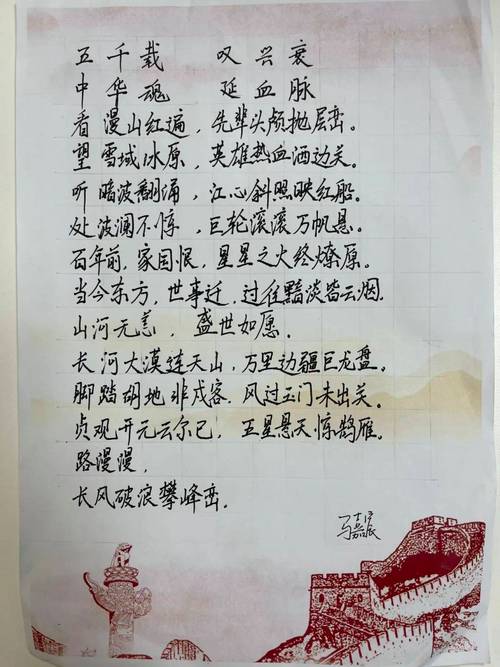 五千载 叹兴衰
中华魂 延血脉
看漫山红遍，先辈头颅抛层峦。
望雪域冰原，英雄热血洒边关。
听暗波翻涌，江心斜照映红船。
处波澜不惊，巨轮滚滚万帆悬。
百年前，家国恨，星星之火终燎原。
当今东方，世事迁，过往黯淡皆云烟.
山河无恙，盛世如愿。
长河大漠连天山，万里边疆巨龙盘。
脚踏胡地非戍客.风过玉门未出关。
贞观开元云尔已，五星悬天惊鹄雁。
路漫漫，
长风破浪攀峰峦.